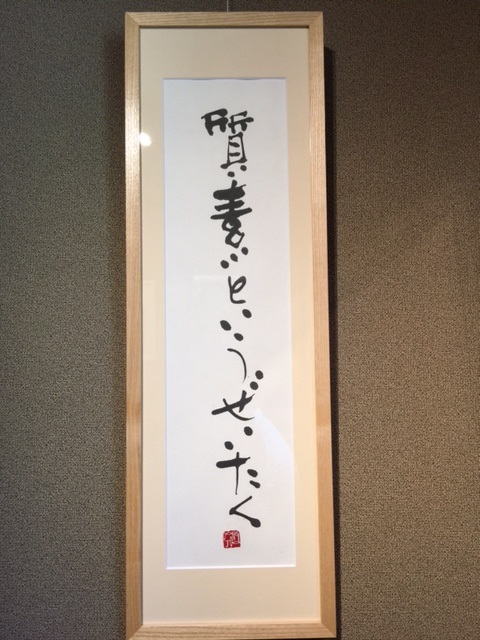 質素というぜいたく